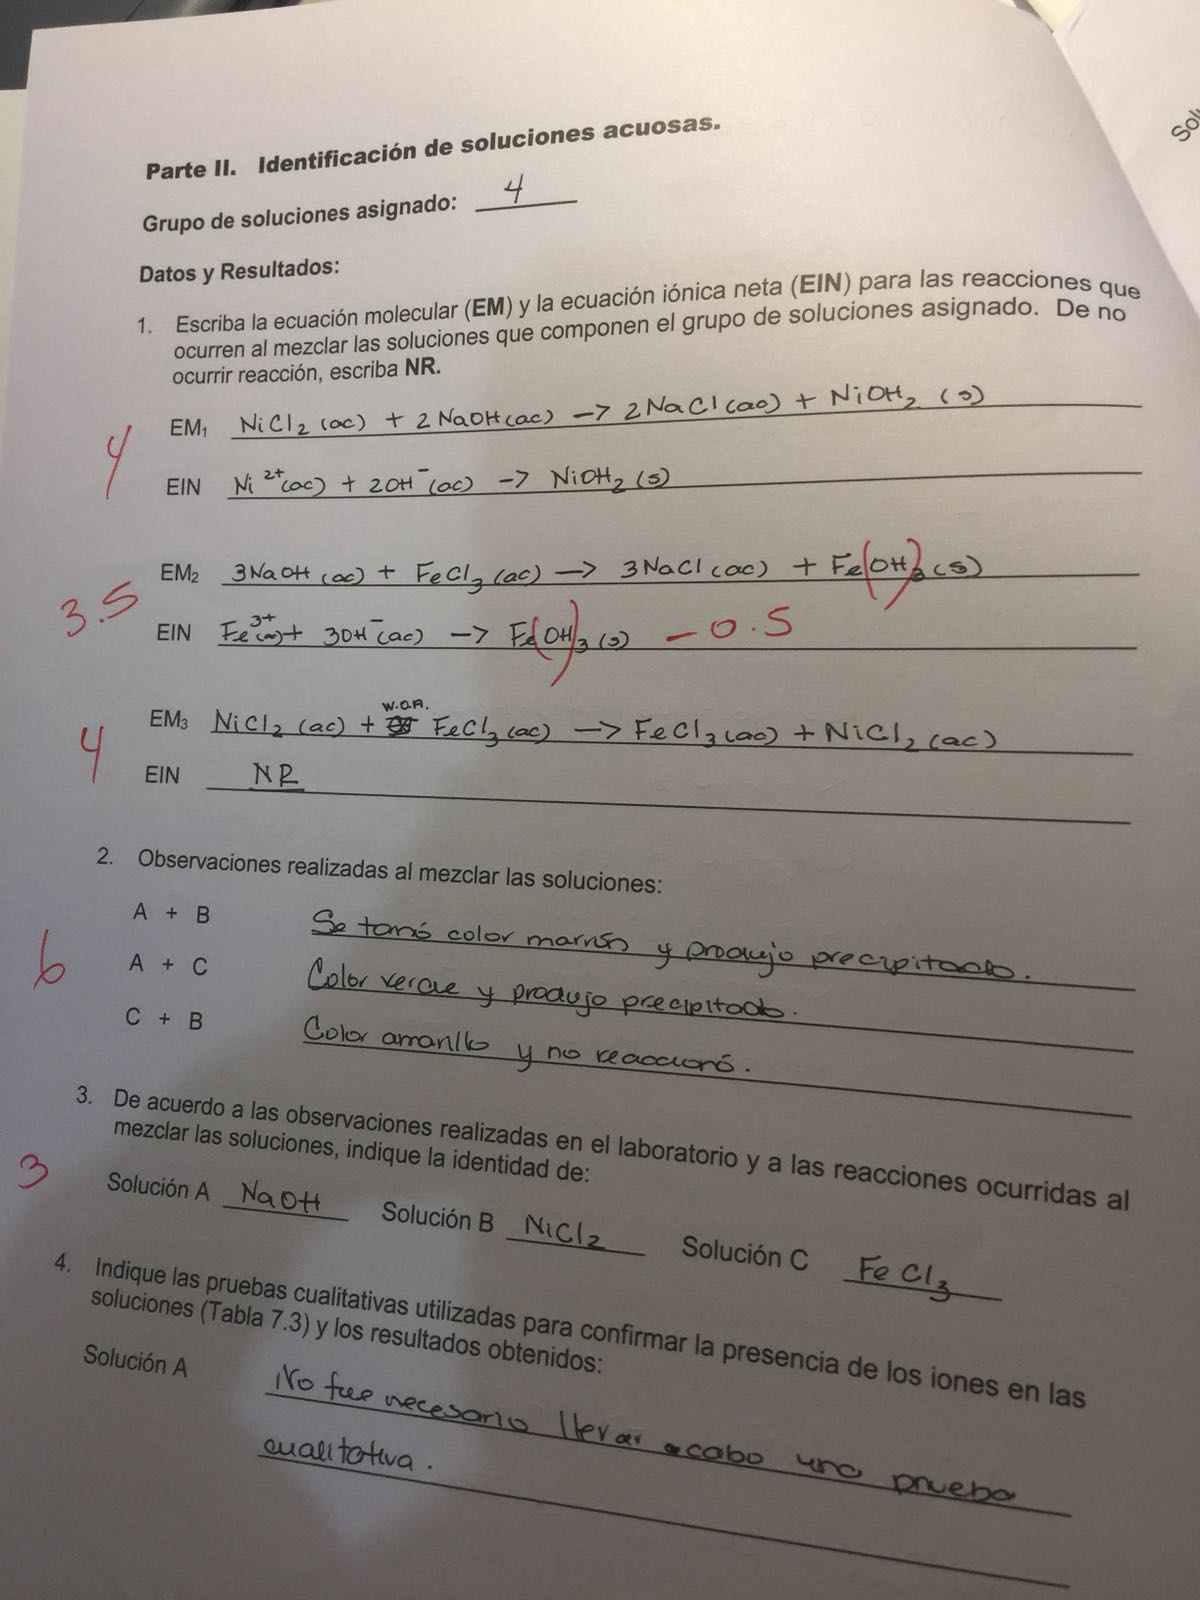 Parte II. Identificación de soluciones acuosas.
Grupo de soluciones asignado: 4
Datos y Resultados:
1. Escriba la ecuación molecular (EM) y la ecuación iónica neta (EIN) para las reacciones que
ocurren al mezclar las soluciones que componen el grupo de soluciones asignado. De no
ocurrir reacción, escriba NR.
EM₁ NiCl₂ (ac) + 2 NaOH (ac) → 2 NaCl (ac) + NiOH₂ (s)
4
EIN Ni²⁺(ac) + 2OH⁻(ac) → NiOH₂ (s)
EM₂ 3NaOH (ac) + FeCl₃ (ac) → 3NaCl (ac) + Fe(OH)₃ (s)
3.5
EIN Fe³⁺(ac) + 3OH⁻(ac) → Fe(OH)₃ (s) - 0.5
W.O.A.
EM₃ NiCl₂ (ac) + FeCl₃ (ac) → FeCl₃ (ac) + NiCl₂ (ac)
4
EIN NR
2. Observaciones realizadas al mezclar las soluciones:
A + B Se tornó color marrón y produjo precipitado.
6
A + C Color verde y produjo precipitado.
C + B Color amarillo y no reaccionó.
3. De acuerdo a las observaciones realizadas en el laboratorio y a las reacciones ocurridas al
mezclar las soluciones, indique la identidad de:
3
Solución A NaOH Solución B NiCl₂ Solución C FeCl₃
4. Indique las pruebas cualitativas utilizadas para confirmar la presencia de los iones en las
soluciones (Tabla 7.3) y los resultados obtenidos:
Solución A No fue necesario llevar a cabo una prueba
cualitativa.